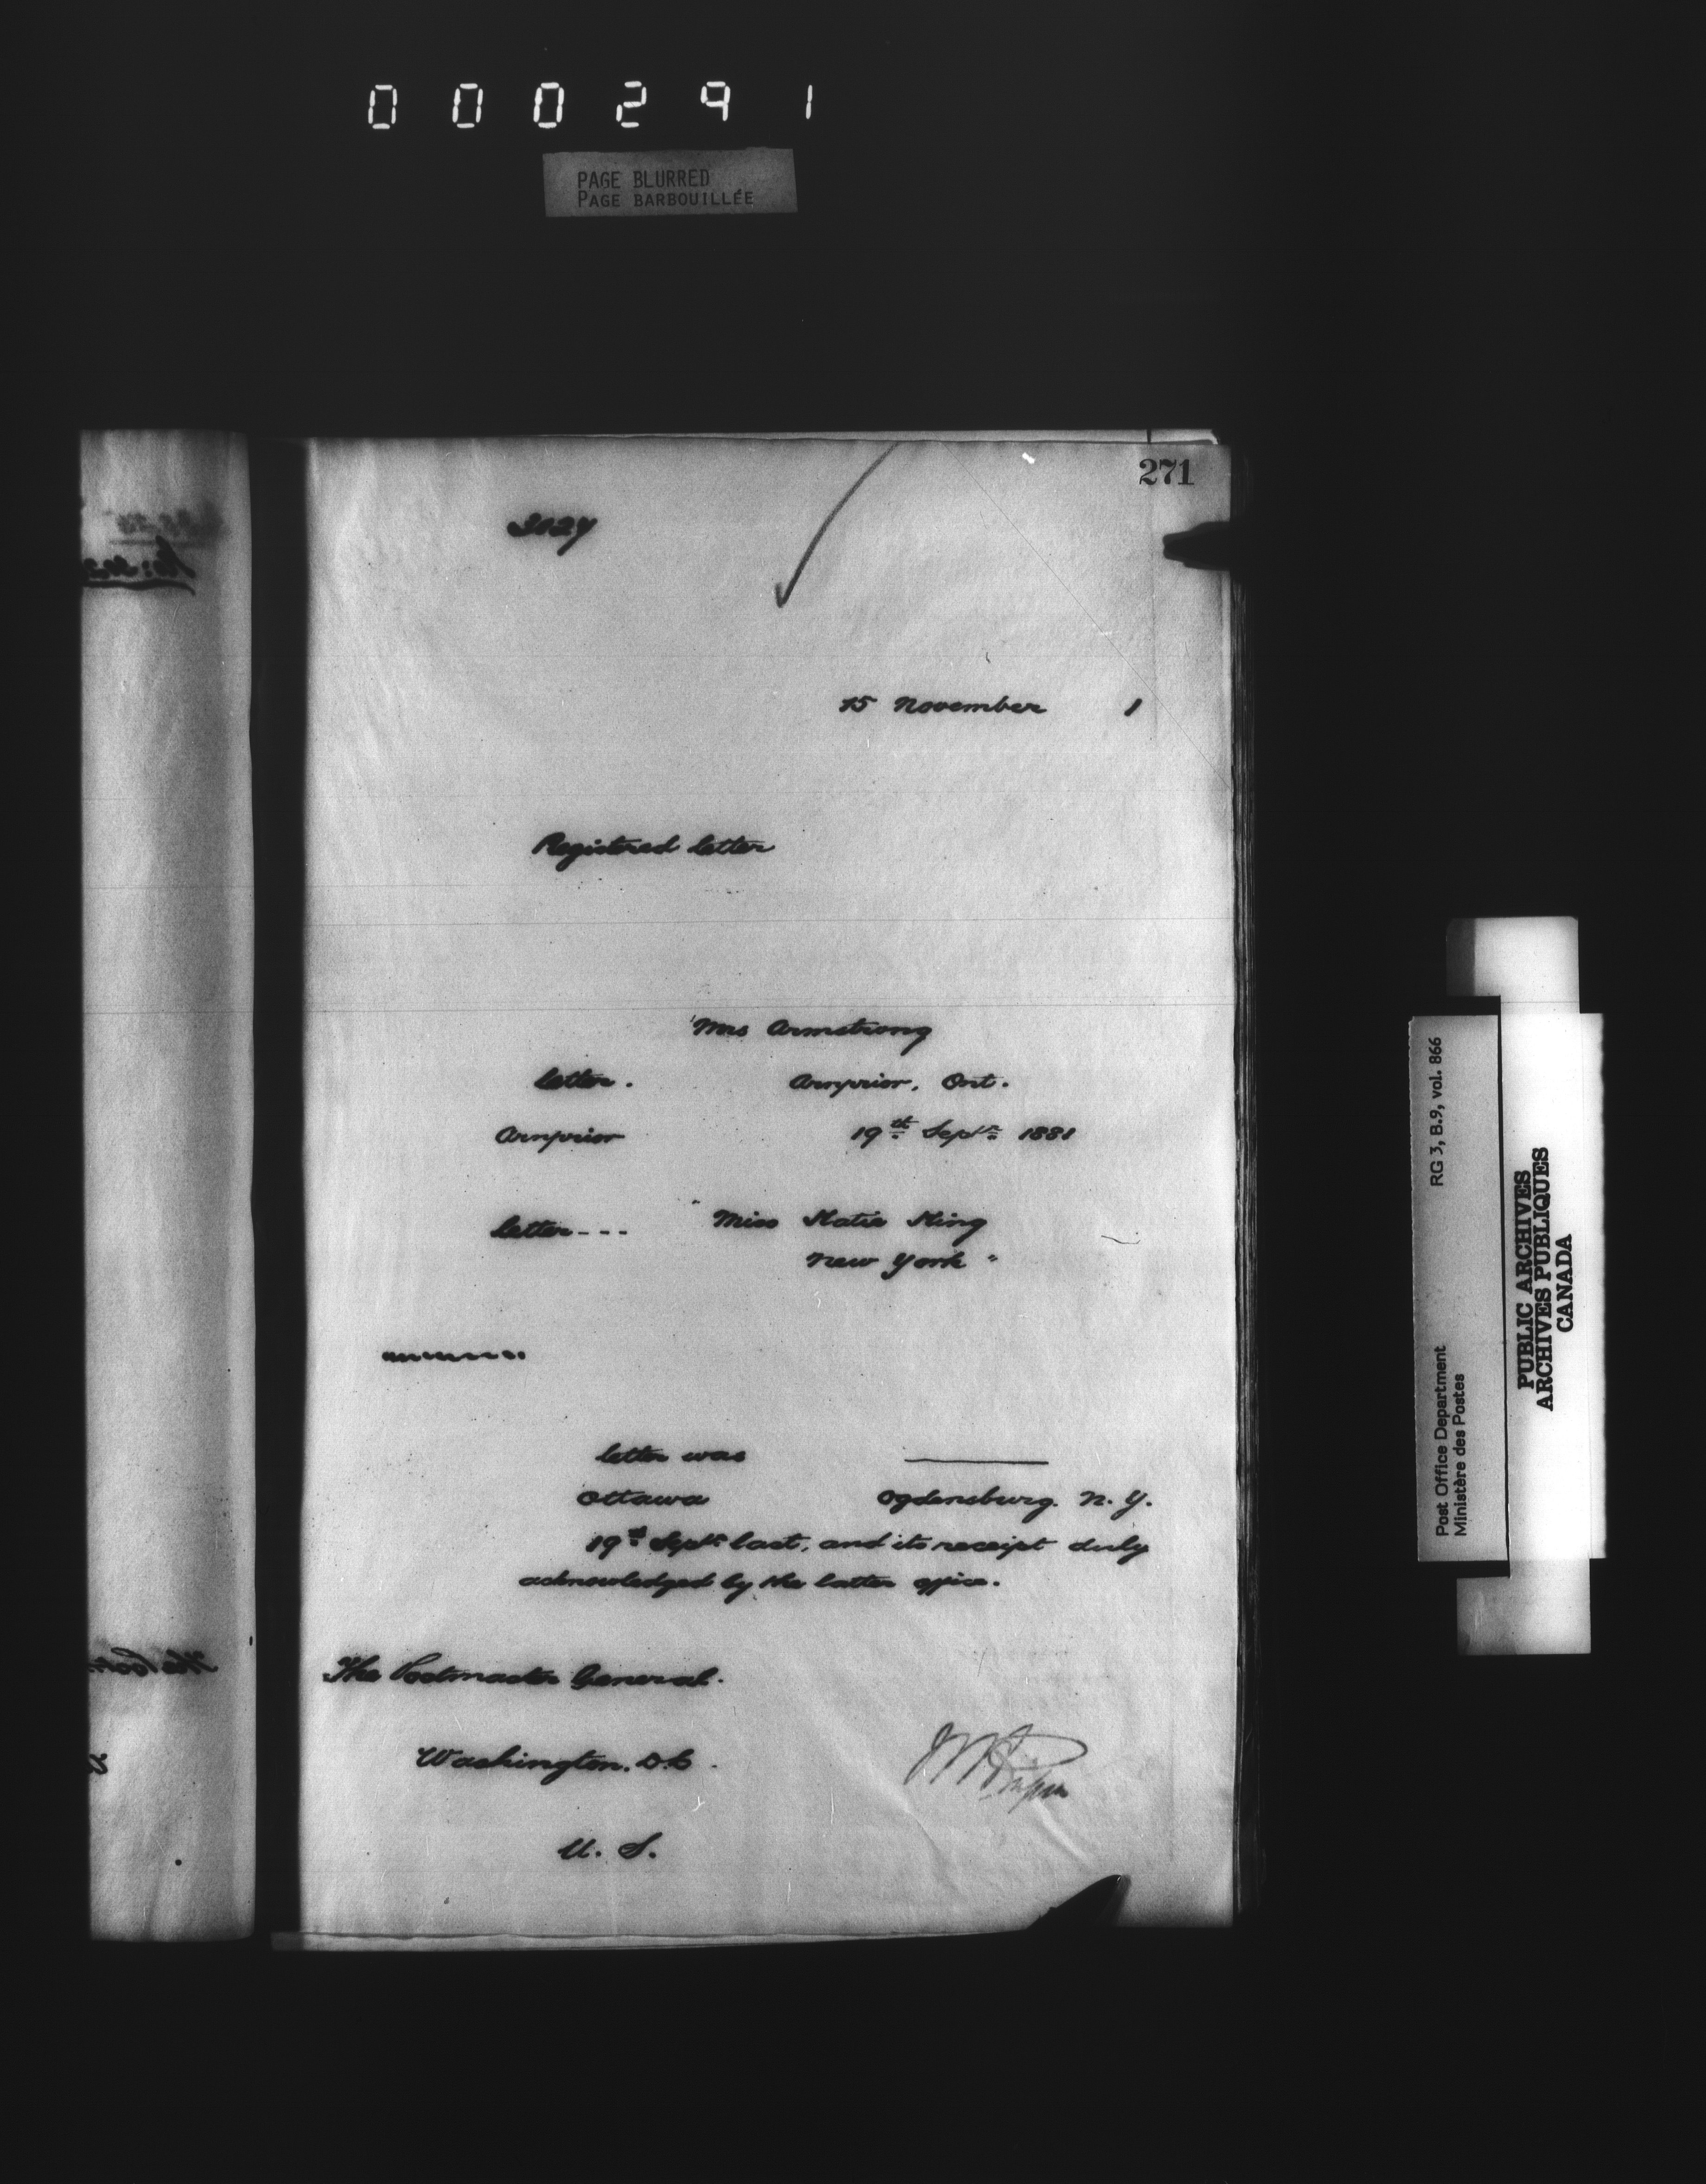 000291
PAGE BLURRED
PAGE BARBOUILLÉE
271
3027
15 November 1
Registered letter
Mrs Armstrong
letter. Arnprior, Ont.
Arnprior 19th Septr 1881
letter--- Miss Katie King
New York "
letter was
Ottawa Ogdensburg. N. Y.
19th Septr last, and its receipt duly
acknowledged by the latter office.
The Postmaster General.
Washington. D.C.
U. S.
Post Office Department RG 3, B.9, vol. 866
Ministère des Postes
PUBLIC ARCHIVES
ARCHIVES PUBLIQUES
CANADA